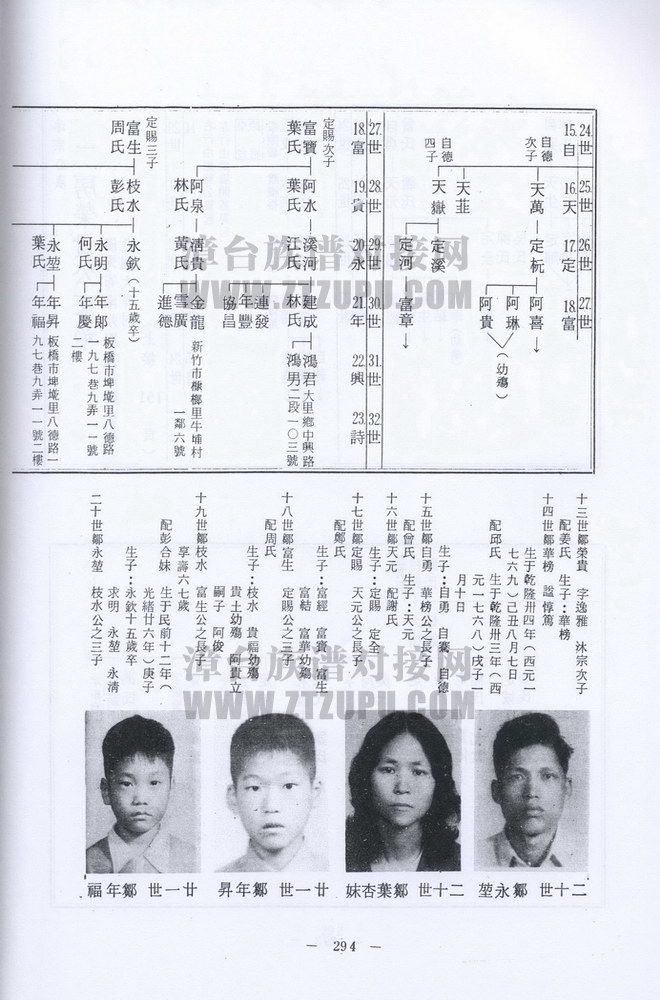 24.世 25.世 26.世 27.世
15.自 16.天 17.定 18.富
自德次子 天萬 定杬 阿喜
阿琳
阿貴
（幼殤）
天韮
自德四子 天嶽 定溪
定河 富章
27.世 28.世 29.世 30.世 31.世 32.世
18.富 19.貴 20.永 21.年 22.興 23.詩
定賜次子
富寶 阿水 溪河 建成 鴻君 大里鄉中興路
葉氏 葉氏 江氏 林氏 鴻男 二段一〇三號
連發
年豐
協昌
阿泉 清貴 金龍 新竹市槺榔里牛埔村
林氏 黃氏 雪廣 一鄰六號
進德
定賜三子
富生 枝水 永欽（十五歲卒）
周氏 彭氏
永明 年郎 板橋市埤墘里八德路
何氏 年慶 一九七巷九弄一一號
二樓
永堃 年昇 板橋市埤墘里八德路一
葉氏 年福 九七巷九弄一一號二樓
十三世鄒榮貴 字逸雅 沐宗次子
配姜氏 生子：華榜
十四世鄒華榜 諡惇篤
生于乾隆卅四年（西元一
七六九）己丑八月七日
配邱氏 生于乾隆卅三年（西
元一七六八）戌子一
月十日
生子：自勇 自養 自德
十五世鄒自勇 華榜公之長子
配曾氏 生子：天元
十六世鄒天元 配謝氏
生子：定賜 定全
十七世鄒定賜 天元公之長子
配鄭氏
生子：富經 富寶 富生
富結 富華幼殤
十八世鄒富生 定賜公之三子
配周氏
生子：枝水 貴福幼殤
貴土幼殤 阿貴立
嗣子 阿俊
十九世鄒枝水 富生公之長子
享壽六七歲
配彭合妹 生于民前十二年（
光緒廿六年）庚子
生子：永欽十五歲卒
求明 永堃 永清
二十世鄒永堃 枝水公之三子
二十世 鄒永堃
二十世 鄒葉杏妹
廿一世 鄒年昇
廿一世 鄒年福
— 294 —
漳台族谱对接网
WWW.ZTZUPU.COM
漳台族谱对接网
WWW.ZTZUPU.COM